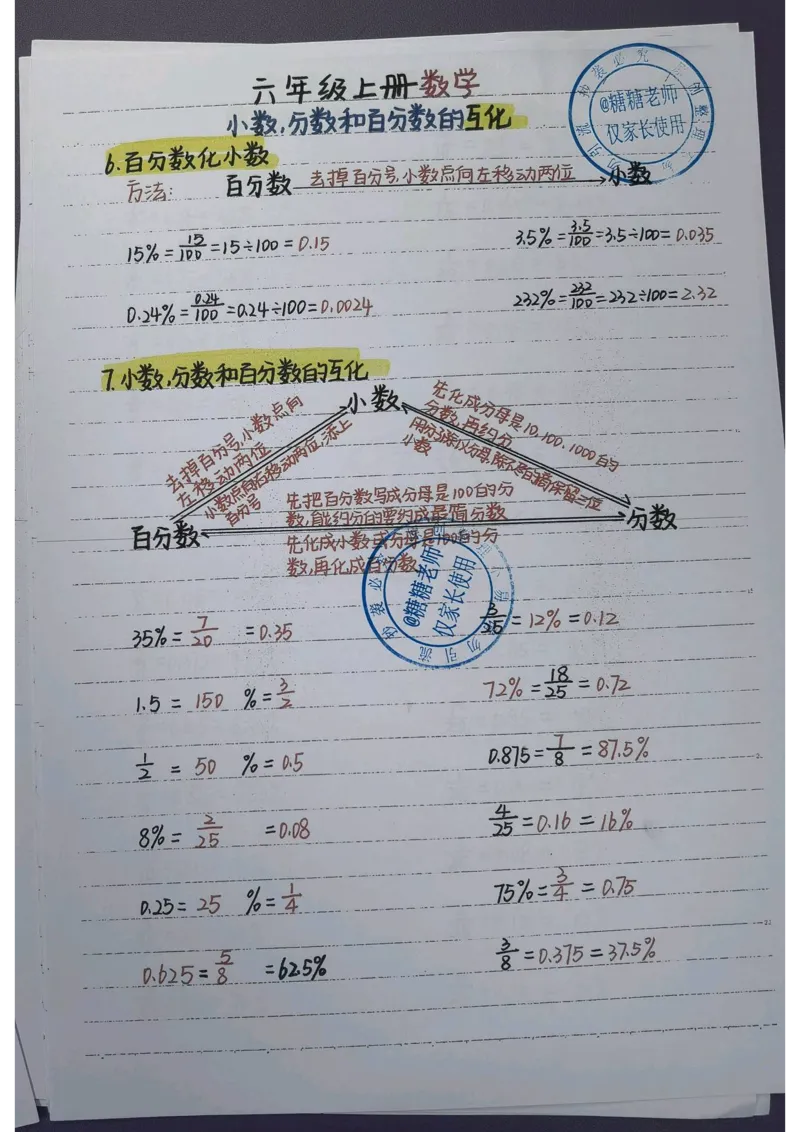 六年级上册数学
小数,分数和百分数的互化
@糖糖老师
仅家长使用
6.百分数化小数
方法: 百分数 去掉百分号,小数点向左移动两位 小数
15%=15/100=15÷100=0.15
3.5%=3.5/100=3.5÷100=0.035
0.24%=0.24/100=0.24÷100=0.0024
232%=232/100=232÷100=2.32
7.小数,分数和百分数的互化
小数
去掉百分号,小数点向
左移动两位
小数点向右移动两位,添上
百分号
先化成分母是10,100,1000的
分数,再约分
用分子除以分母,除不尽的通常保留三位
小数
先把百分数写成分母是100的分
数,能约分的要约成最简分数
百分数
分数
先化成小数或分母是100的分
数,再化成百分数
@糖糖老师
仅家长使用
35%=7/20 =0.35
3/25=12%=0.12
1.5=150 %=3/2
72%=18/25=0.72
1/2=50 %=0.5
0.875=7/8=87.5%
8%=2/25 =0.08
4/25=0.16=16%
0.25=25 %=1/4
75%=3/4=0.75
0.625=5/8 =62.5%
3/8=0.375=37.5%